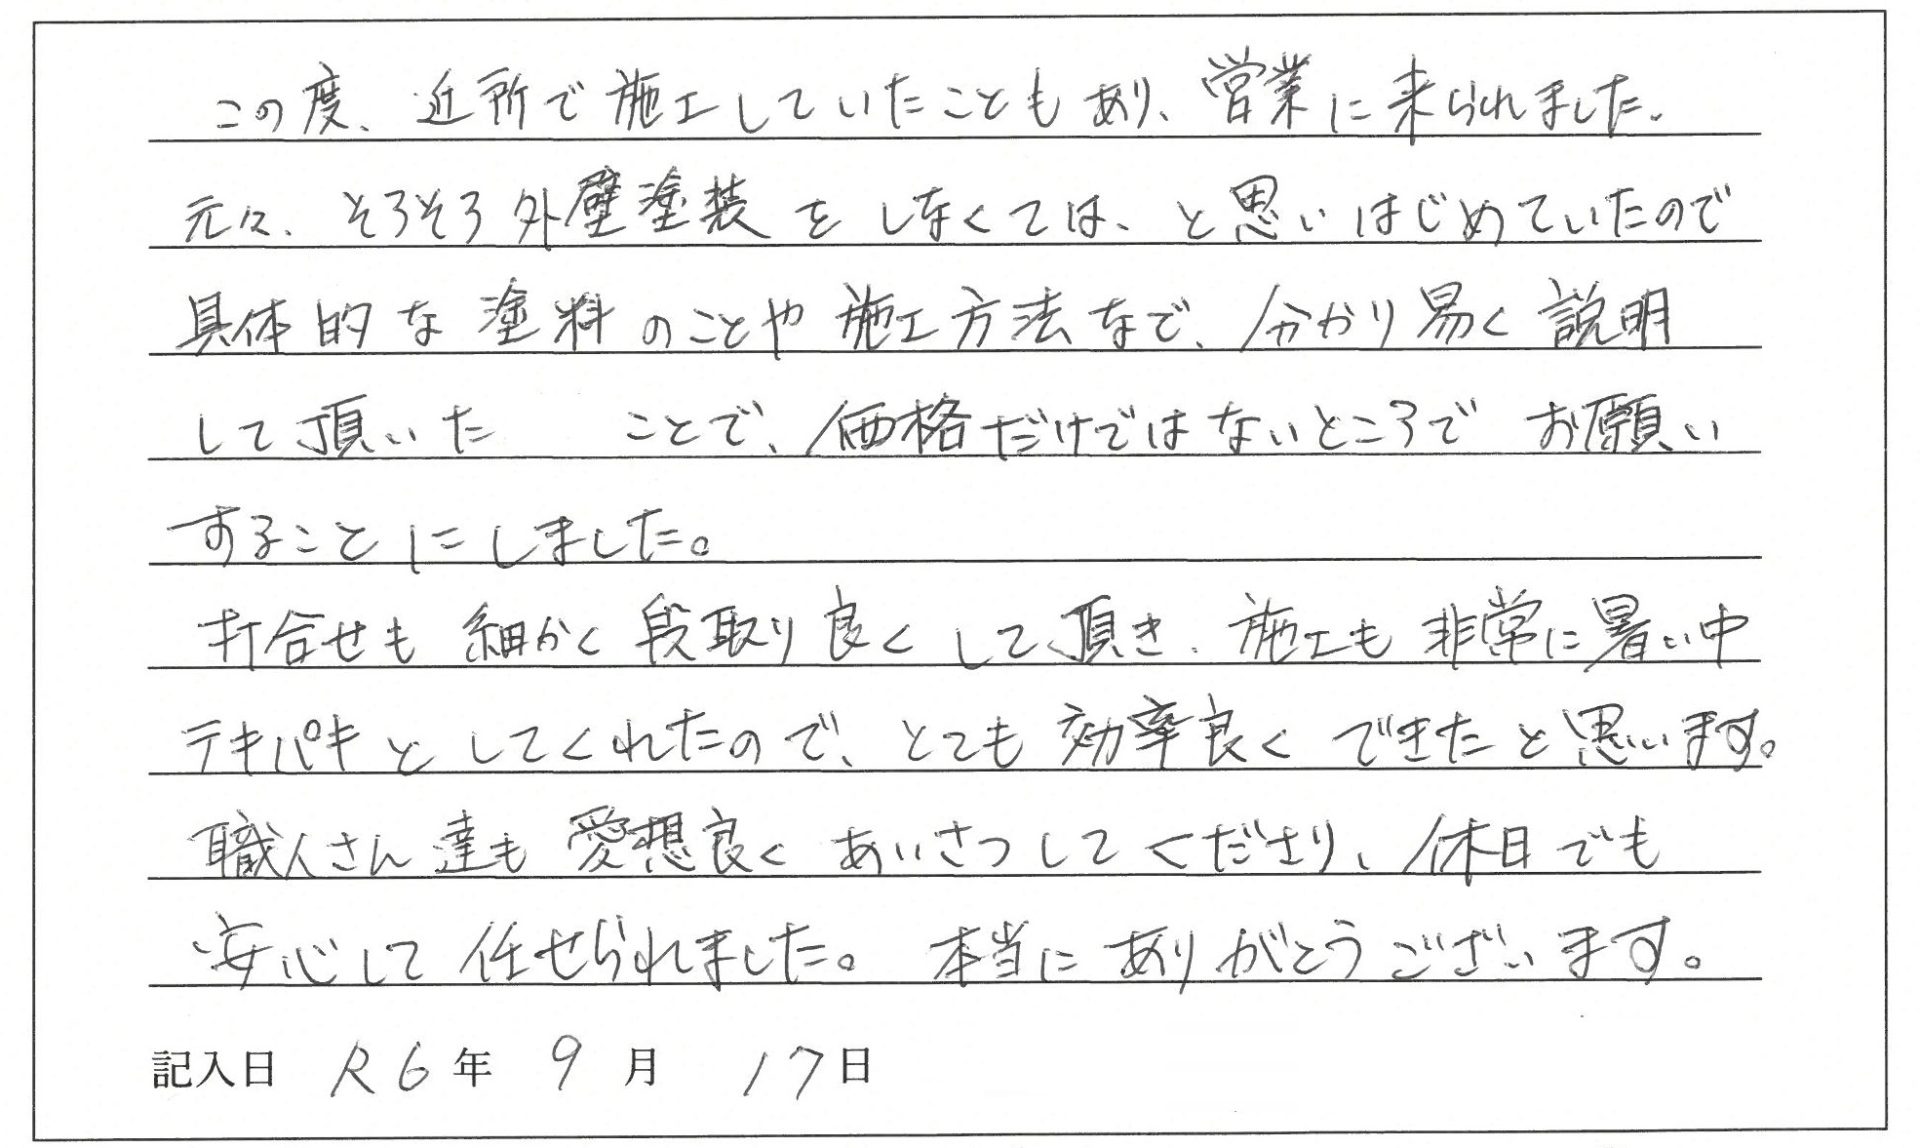 この度、近所で施工していたこともあり、営業に来られました。
元々、そろそろ外壁塗装をしなくては、と思いはじめていたので
具体的な塗料のことや施工方法なで、分かり易く説明
して頂いた　ことで、価格だけではないところで お願い
することにしました。
打合せも 細かく 段取り良くして頂き、施工も 非常に暑い中
テキパキとしてくれたので、とても 効率良くできたと思います。
職人さん達も 愛想良く あいさつしてくださり、休日でも
安心して任せられました。 本当に ありがとうございます。
記入日 R6年 9月 17日